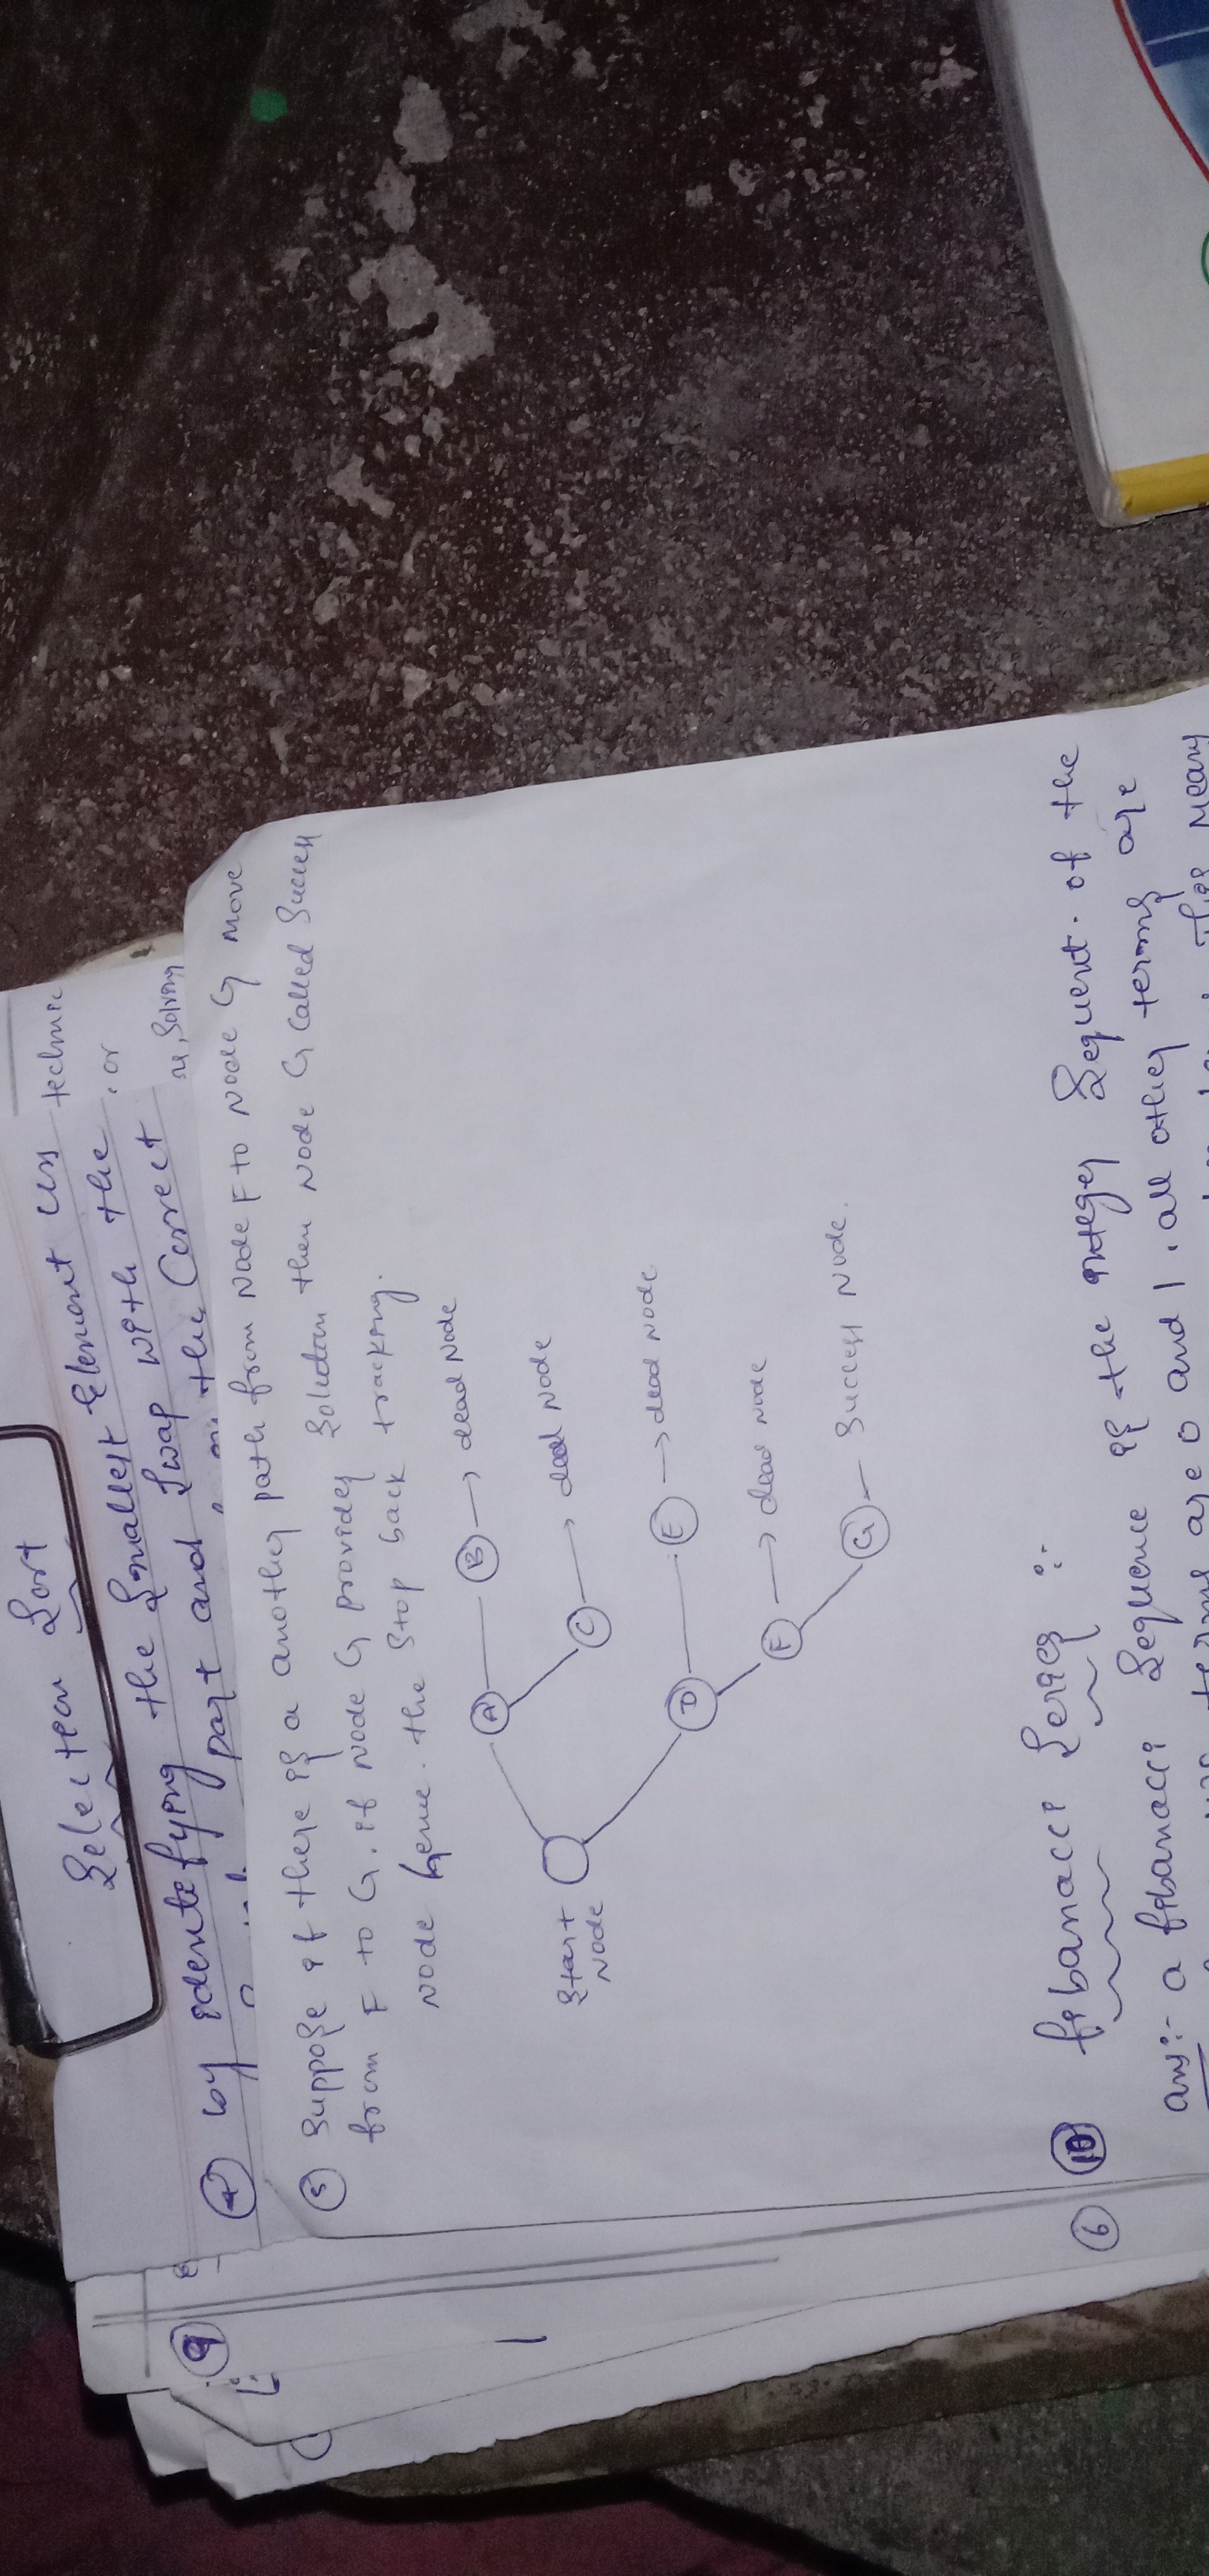 Selection Sort
④ by identefying the Smallest Element
part and Swap with the
the Correct
technic
or
Solving
⑨
⑤ Suppose if there is a another path from Node F to Node G move
from F to G. if Node G provides Solution then Node G called Success
Node hence. the Stop back tracking.
Start
Node
A
B → dead Node
C → dead Node
D
E → dead Node
F → dead Node
G - Success Node.
⑥ ⑩ fibanacci Series :-
ans:- a fibanacci Sequence is the integer Sequent. of the
are 0 and 1. all other terms are
This means